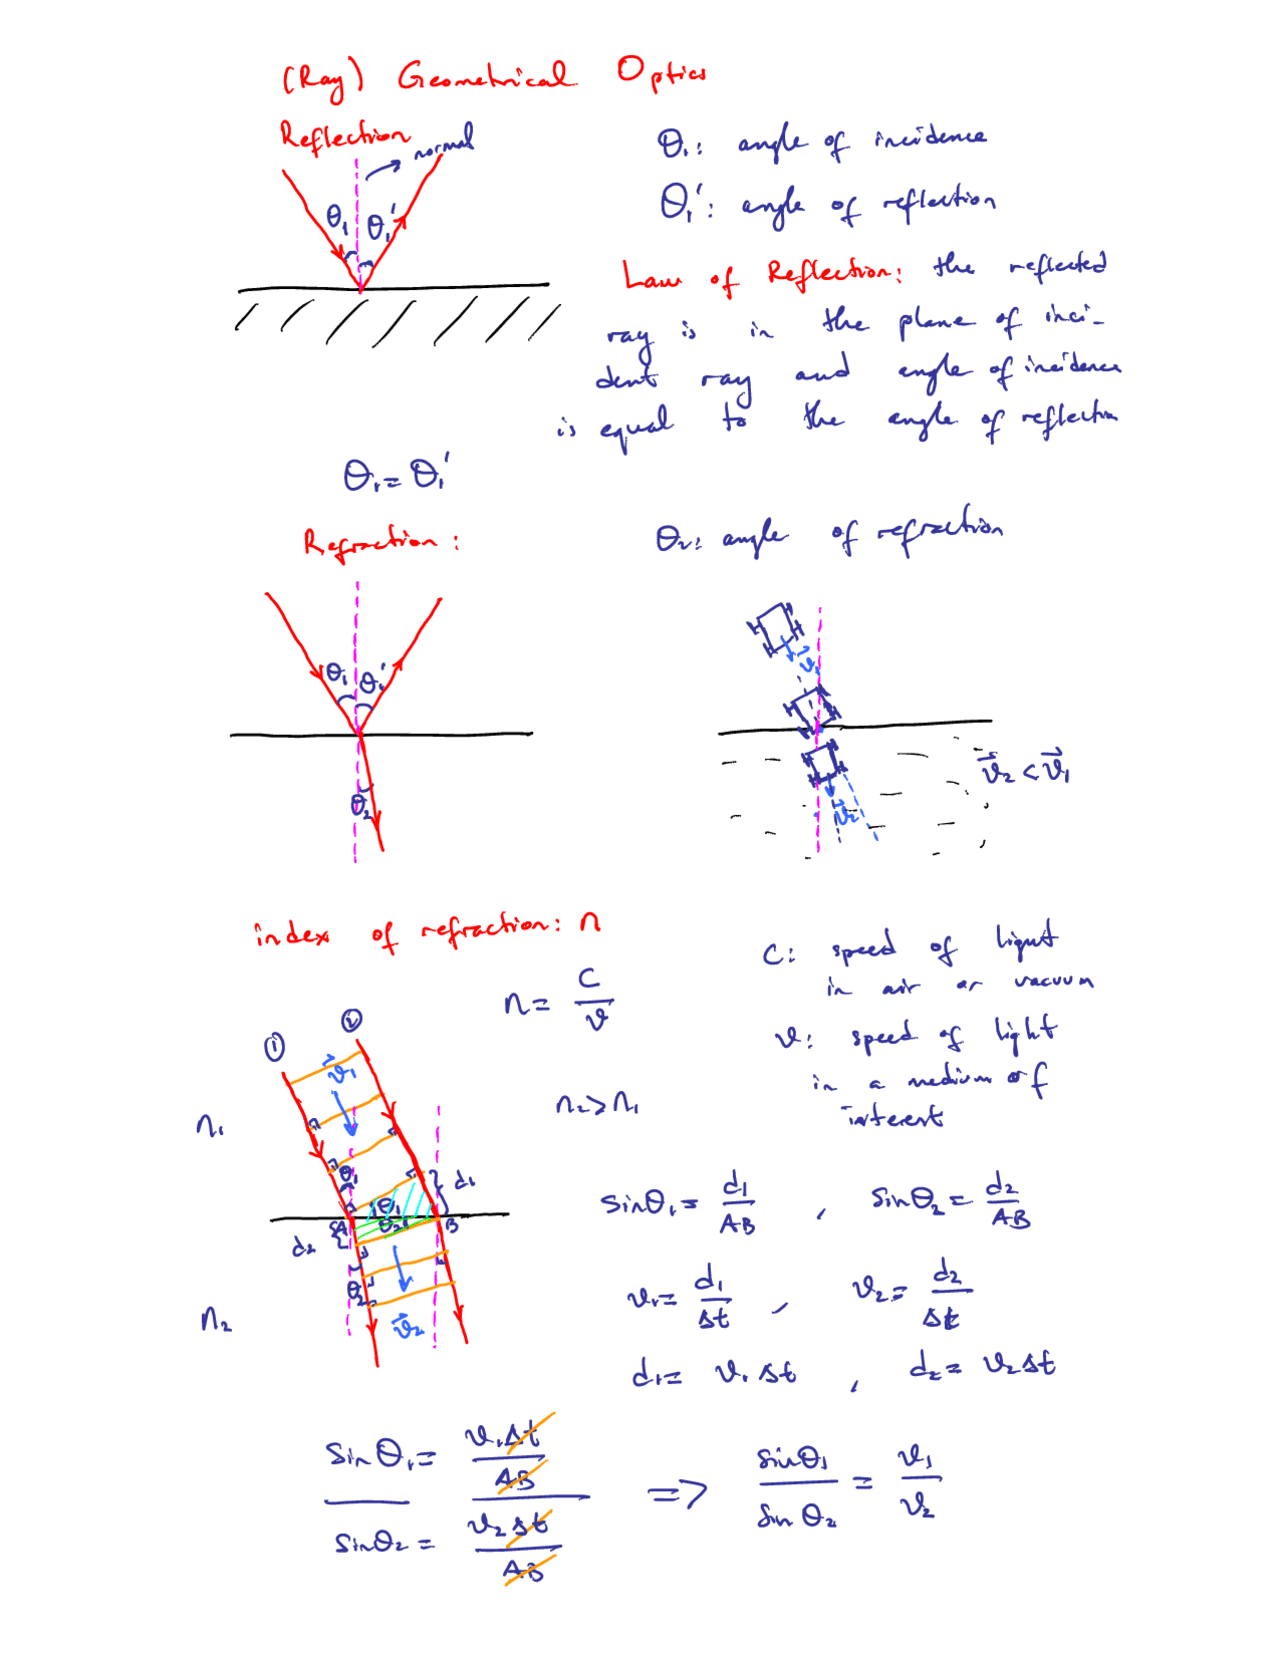 (Ray) Geometrical Optics
Reflection
normal
θ₁ θ₁'
θ₁: angle of incidence
θ₁': angle of reflection
Law of Reflection: the reflected
ray is in the plane of inci-
dent ray and angle of incidence
is equal to the angle of reflection
θ₁ = θ₁'
Refraction:
θ₂: angle of refraction
θ₁ θ₁'
θ₂
v⃗₁
v⃗₂ < v⃗₁
v⃗₂
index of refraction: n
n = c/v
C: speed of light
in air or vacuum
v: speed of light
in a medium of
interest
① ②
v⃗₁
n₁
n₂ > n₁
θ₁
d₁
θ₁
A θ₂ B
d₂
θ₂
n₂
v⃗₂
sinθ₁ = d₁/AB , sinθ₂ = d₂/AB
v₁ = d₁/Δt , v₂ = d₂/Δt
d₁ = v₁Δt , d₂ = v₂Δt
sinθ₁ = v₁Δt/AB
sinθ₂ = v₂Δt/AB
=> sinθ₁/sinθ₂ = v₁/v₂